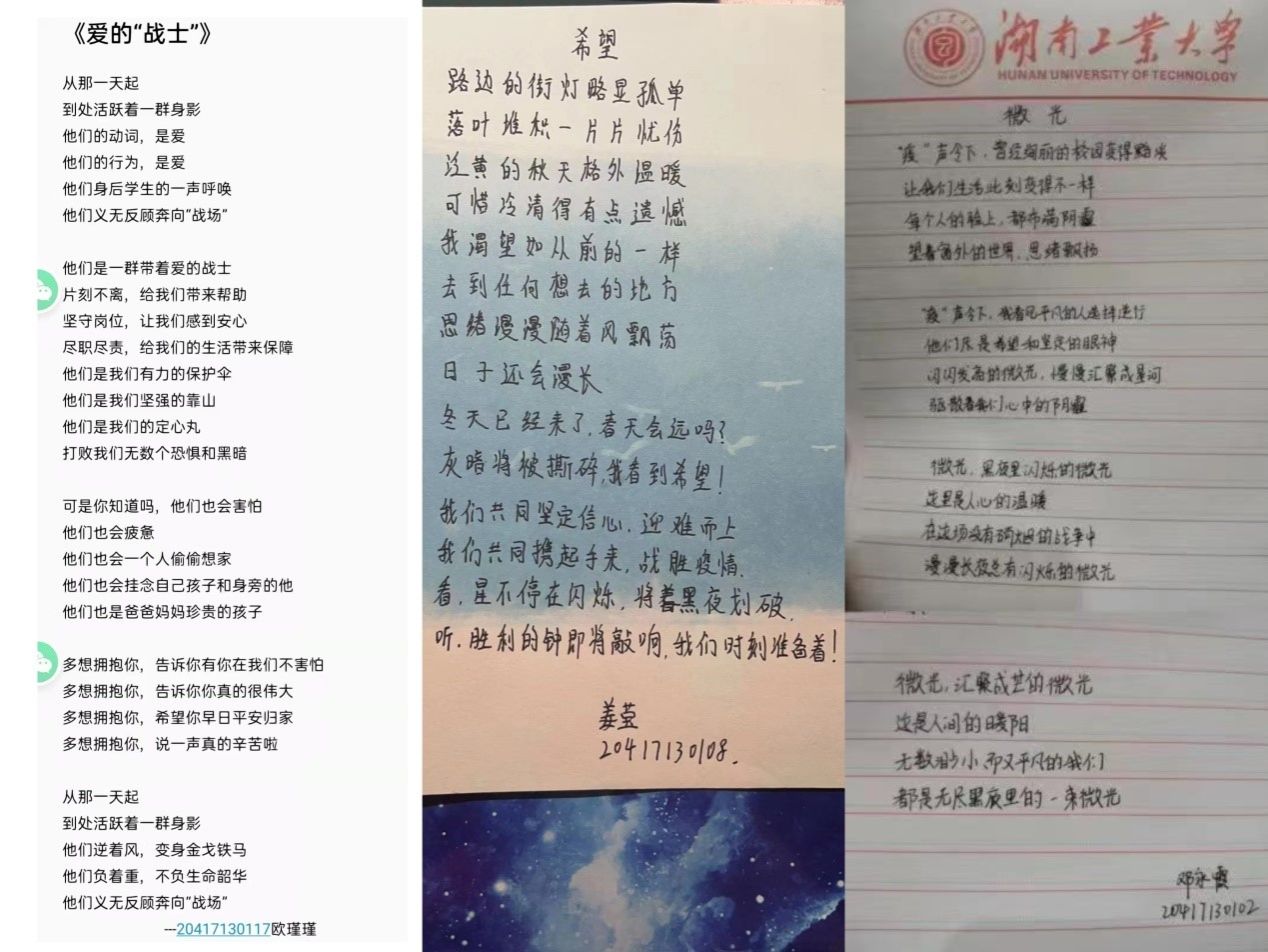 《爱的“战士”》
从那一天起
到处活跃着一群身影
他们的动词，是爱
他们的行为，是爱
他们身后学生的一声呼唤
他们义无反顾奔向“战场”
他们是一群带着爱的战士
片刻不离，给我们带来帮助
坚守岗位，让我们感到安心
尽职尽责，给我们的生活带来保障
他们是我们有力的保护伞
他们是我们坚强的靠山
他们是我们的定心丸
打败我们无数个恐惧和黑暗
可是你知道吗，他们也会害怕
他们也会疲惫
他们也会一个人偷偷想家
他们也会挂念自己孩子和身旁的他
他们也是爸爸妈妈珍贵的孩子
多想拥抱你，告诉你有你在我们不害怕
多想拥抱你，告诉你你真的很伟大
多想拥抱你，希望你早日平安归家
多想拥抱你，说一声真的辛苦啦
从那一天起
到处活跃着一群身影
他们逆着风，变身金戈铁马
他们负着重，不负生命韶华
他们义无反顾奔向“战场”
---20417130117欧瑾瑾
希望
路边的街灯略显孤单
落叶堆积一片片忧伤
泛黄的秋天格外温暖
可惜冷清得有点遗憾
我渴望如从前的一样
去到任何想去的地方
思绪漫漫随着风飘荡
日子还会漫长
冬天已经来了,春天会远吗?
灰暗将被撕碎,我看到希望!
我们共同坚定信心,迎难而上
我们共同携起手来,战胜疫情.
看,星不停在闪烁,将黑夜划破.
听.胜利的钟即将敲响,我们时刻准备着!
姜莹
20417130108.
湖南工业大学
HUNAN UNIVERSITY OF TECHNOLOGY
微光
“疫”声令下,曾经绚丽的校园变得黯淡
让我们生活此刻变得不一样
每个人的脸上,都布满阴霾
望着窗外的世界,思绪飘扬
“疫”声令下,我看见平凡的人选择逆行
他们尽是希望和坚定的眼神
闪闪发高的微光,慢慢汇聚成星河
驱散着我们心中的阴霾
微光,黑夜里闪烁的微光
这里是人心的温暖
在这场没有硝烟的战争中
漫漫长夜总有闪烁的微光
微光,汇聚成芒的微光
这是人间的暖阳
无数渺小而又平凡的我们
都是无尽黑夜里的一束微光
邓永霞
20417130102